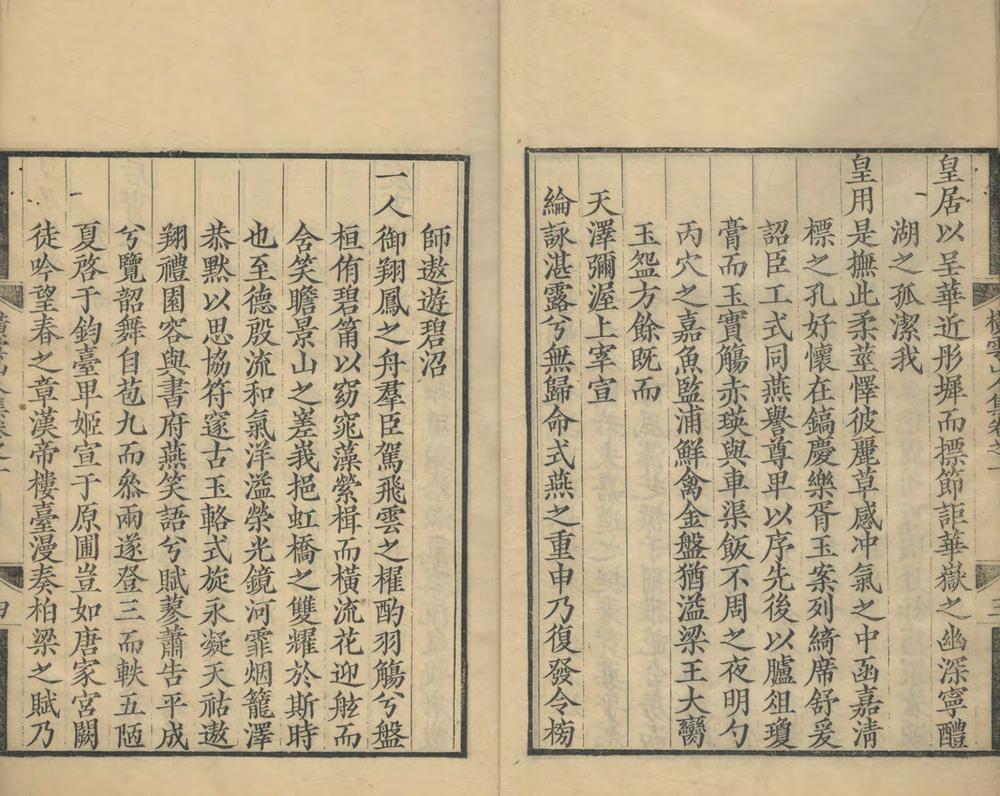 皇居以呈華近彤墀而摽節詎華嶽之幽深寧醴
湖之孤潔我
皇用是撫此柔莖懌彼麗草感冲氣之中函嘉清
標之孔好懷在鎬慶樂胥玉案列綺席舒爰
詔臣工式同燕譽尊卑以序先後以臚徂瓊
膏而玉實觴赤瑛與車渠飯不周之夜明勺
丙穴之嘉魚監浦鮮禽金盤猶溢梁王大臠
玉盌方餘既而
天澤彌渥上宰宣
綸詠湛露兮無歸命式燕之重申乃復發令榜
師遨遊碧沼
一人御翔鳳之舟羣臣駕飛雲之櫂酌羽觴兮盤
桓侑碧筩以窈窕藻縈楫而橫流花迎舷而
含笑瞻景山之差峩挹虹橋之雙耀於斯時
也至德殷流和氣洋溢榮光鏡河霏烟籠澤
恭默以思協符邃古玉輅式旋永凝天祜遨
翔禮園容與書府燕笑語兮賦蓼蕭告平成
兮覽韶舞自苞九而叅兩遂登三而軼五陋
夏啓于鈞臺卑姬宣于原圃豈如唐家宮闕
徒吟望春之章漢帝樓臺漫奏柏梁之賦乃
四